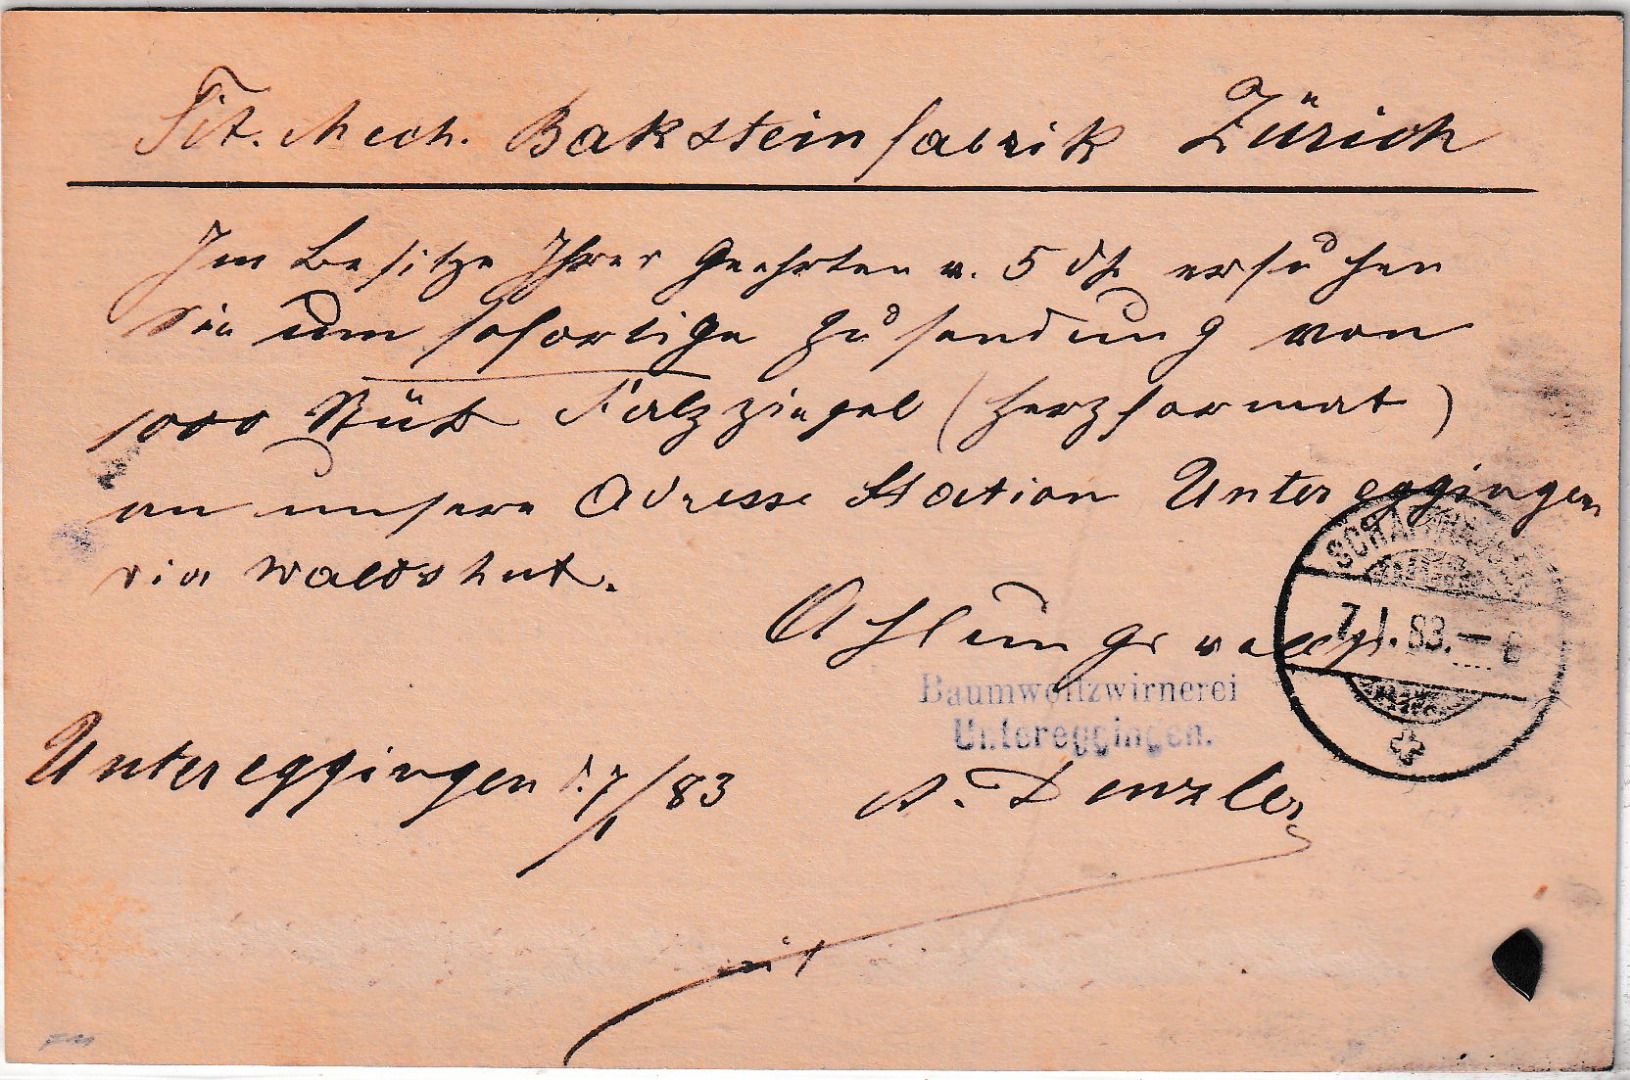 Tit. Mech. Baksteinfabrik Zürich
Im Besitze Ihrer Geehrten v. 5 ds ersuchen
Sie um sofortige Zusendung von
1000 Stück Falzziegel (Herzformat)
an unsere Adresse Station Untereggingen
via Waldshut.
Achtungsvollst
Baumwollzwirnerei
Untereggingen.
Untereggingen d. 7/1 83
A. Denzler
SCHAFFHAUSEN
7.I.83.